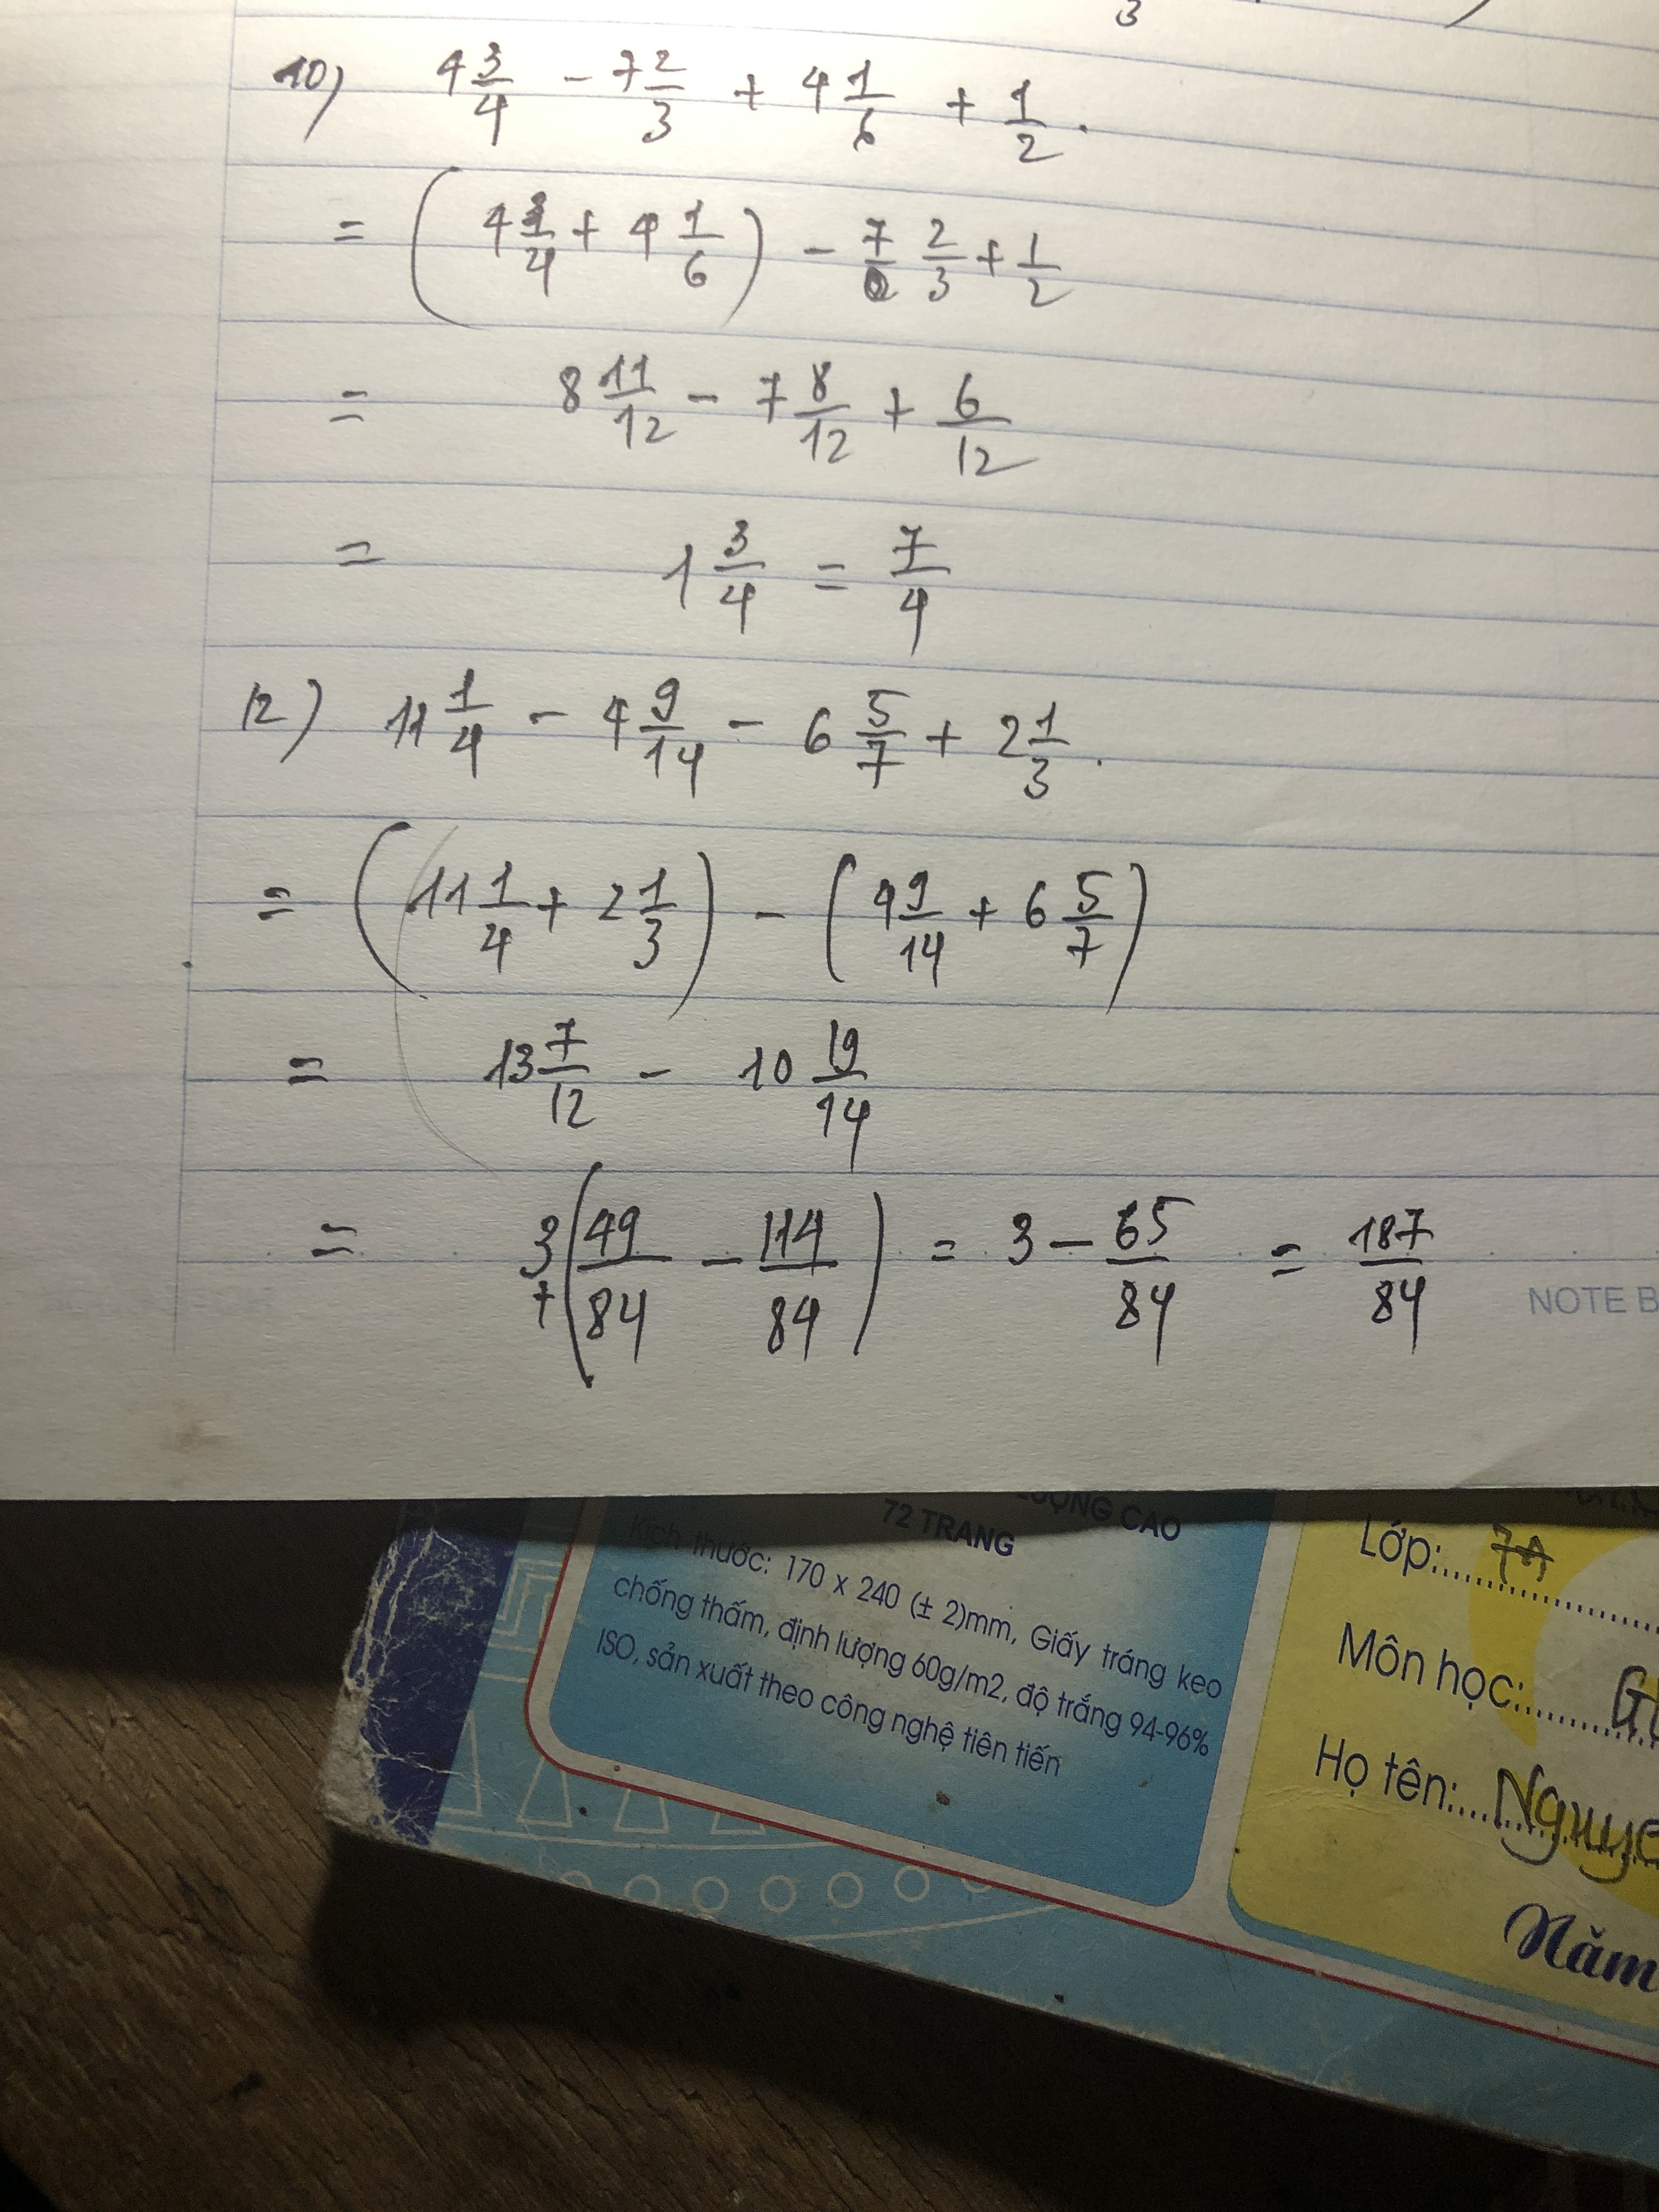 3
10) 4 3/4 - 7 2/3 + 4 1/6 + 1/2.
= (4 3/4 + 4 1/6) - 7 2/3 + 1/2
= 8 11/12 - 7 8/12 + 6/12
= 1 3/4 = 7/4
12) 11 1/4 - 4 9/14 - 6 5/7 + 2 1/3.
= (11 1/4 + 2 1/3) - (4 9/14 + 6 5/7)
= 13 7/12 - 10 19/14
= 3 + (49/84 - 114/84) = 3 - 65/84 = 187/84
NOTE B
LƯỢNG CAO
72 TRANG
Kích thước: 170 x 240 (± 2)mm, Giấy tráng keo
chống thấm, định lượng 60g/m2, độ trắng 94-96%
ISO, sản xuất theo công nghệ tiên tiến
Lớp: 7A
Môn học:
Họ tên: Nguye
Năm